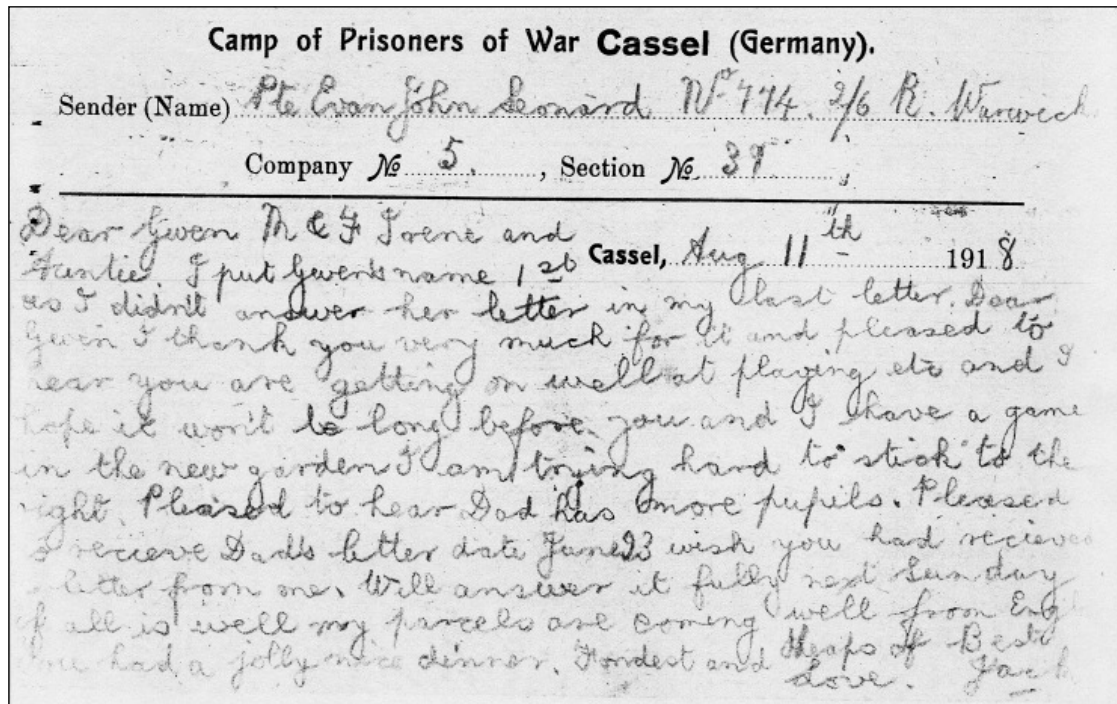 Camp of Prisoners of War Cassel (Germany).
Sender (Name) Pte Evan John Leonard Nº 774. 2/6 R. Warwick
Company № 5. , Section № 37
Dear Gwen M & F Irene and
Cassel, Aug 11th 1918
Auntie. I put Gwen's name 1st
as I didn't answer her letter in my last letter. Dear
Gwen I thank you very much for it and pleased to
hear you are getting on well at playing etc and I
hope it won't be long before you and I have a game
in the new garden I am trying hard to stick to the
right. Pleased to hear Dad has more pupils. Pleased
to recieve Dad's letter date June 23 wish you had recieved
letter from me. Will answer it fully next Sunday
if all is well my parcels are coming well from Eng
had a jolly nice dinner. Fondest and Heaps of Best
Love. Jack